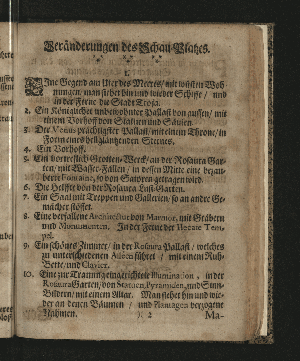 Veränderungen des Schau-Platzes.
1.
Eine Gegend am Ufer des Meeres/ mit wüsten Woh-
nungen/ man siehet hin und wieder Schiffe/ und
in der Ferne die Stadt Troja.
2. Ein Königlicher unbewohnter Pallast von aussen/ mit
einem Vorhoff von Statuen und Säulen.
3. Der Venus prächtigster Pallast/ mit einem Throne/ in
Form eines hellgläntzenden Sternes.
4. Ein Vorhoff.
5. Ein vortreflich Grotten-Werck/ an der Rosaura Gar-
ten/ mit Wasser-Fällen/ in dessen Mitte eine bezau-
berte Fontaine, so von Satyren getragen wird.
6. Die Helffte von der Rosaura Lust-Garten.
7. Ein Saal mit Treppen und Gallerien/ so an andre Ge-
mächer stösset.
8. Eine verfallene Architectur von Marmor, mit Gräbern
und Monumenten. In der Ferne der Hecate Tem-
pel.
9. Ein schönes Zimmer/ in der Rosaura Pallast/ welches
zu unterschiedenen Alleen führet/ mit einem Ruh-
Bette/ und Clavier.
10. Eine zur Traurung eingerichtete Illumination, in der
Rosaura Garten/ von Statuen, Pyramiden, und Sinn-
Bildern/ mit einem Altar. Man siehet hin und wie-
der an denen Bäumen/ und Plantagen verzogene
Nahmen.
):( 2
Ma-